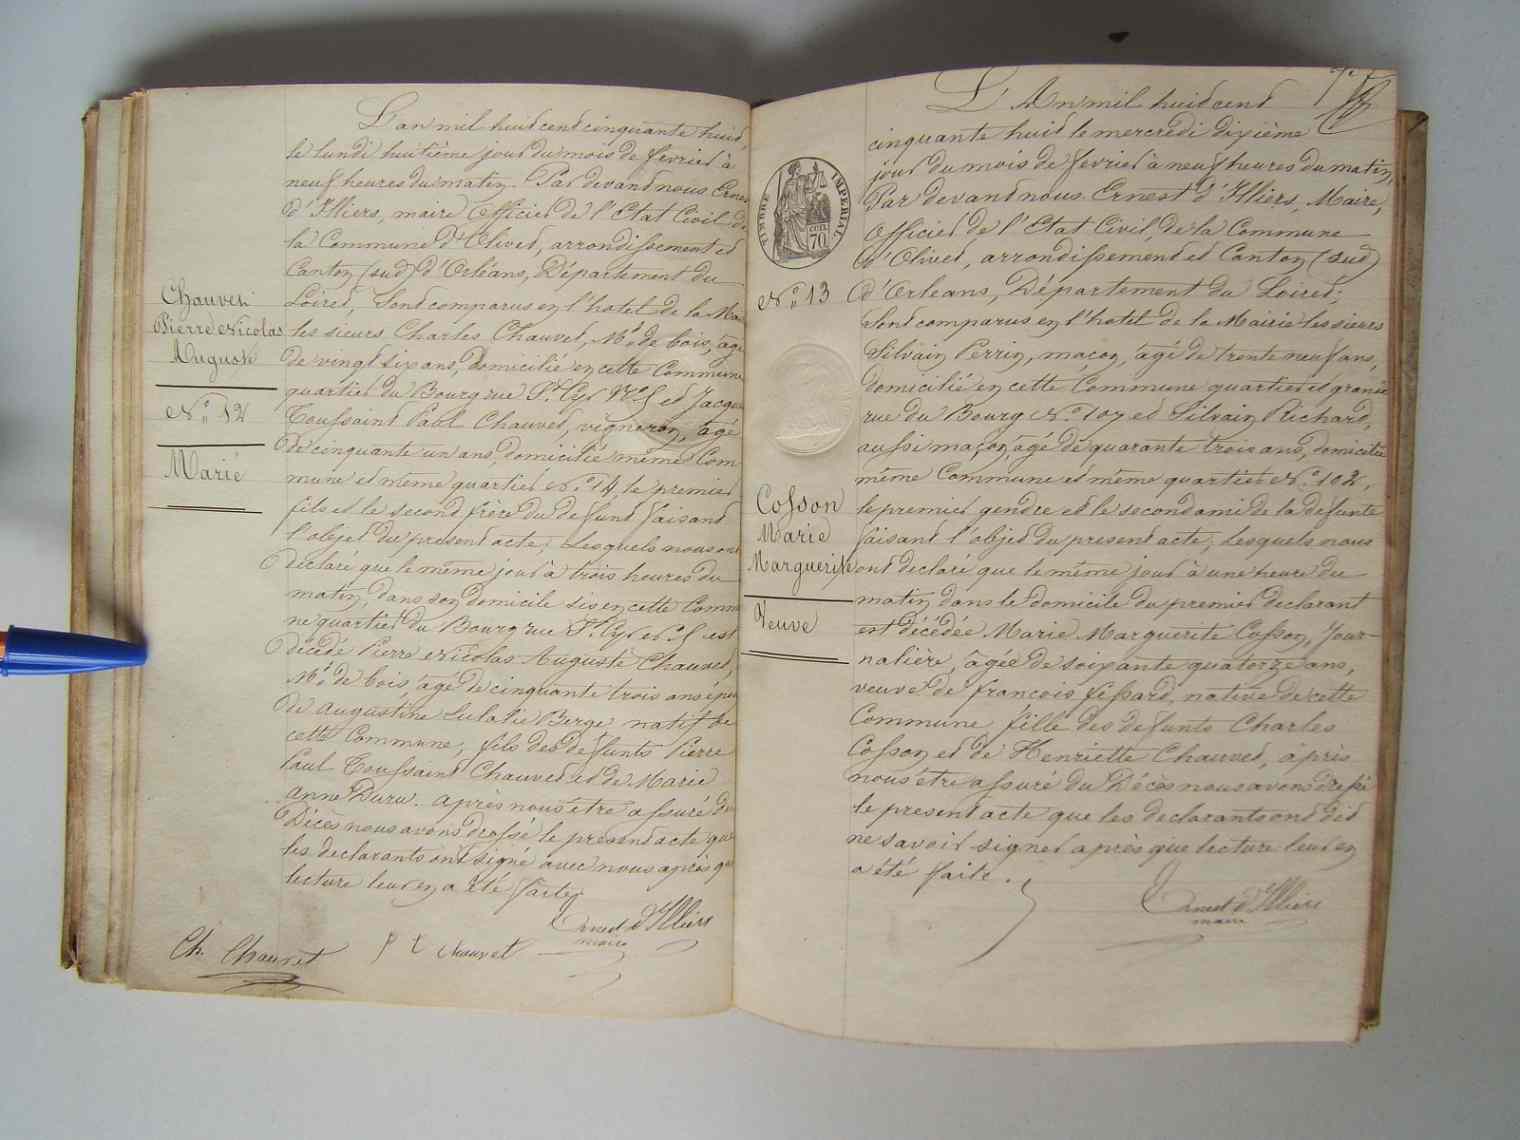 Chauvet
Pierre Nicolas
Auguste
N.o 12
Marié
L'an mil huit cent cinquante huit,
le lundi huitième jour du mois de fevrier à
neuf heures du matin. Par devant nous Ernest
d'Illiers, maire Officier de l'Etat Civil de
la Commune d'Olivet, arrondissement et
Canton (sud) d'Orléans, Département du
Loiret, Sont comparus en l'hotel de la Mai
les sieurs Charles Chauvet, Md de bois, âgé
de vingt six ans, domicilié en cette Commune
quartier du Bourg rue St Cyr No 5 et Jacques
Toussaint Paul Chauvet, vigneron, âgé
de cinquante un ans, domicilié même Com
mune et même quartier No 14, le premier
fils et le second frère du defunt faisant
l'objet du present acte; Lesquels nous ont
declaré que le même jour à trois heures du
matin, dans son domicile sis en cette Commu
ne quartier du Bourg rue St Cyr No 5 est
décédé Pierre Nicolas Auguste Chauvet,
Md de bois, âgé de cinquante trois ans époux
de Augustine Eulalie Berge natif de
cette Commune, fils des defunts Pierre
Paul Toussaint Chauvet et de Marie
Anne Duru. Après nous être assuré du
Décès nous avons dressé le présent acte que
les declarants ont signé avec nous après que
lecture leur en a été faite,
Ernest d'Illiers
maire
Ch. Chauvet P T Chauvet
TIMBRE IMPERIAL
70
N.o 13
Cosson
Marie
Marguerite
Veuve
L'An mil huit cent
cinquante huit le mercredi dixième
jour du mois de fevrier à neuf heures du matin,
Par devant nous Ernest d'Illiers, Maire,
Officier de l'Etat Civil, de la Commune
d'Olivet, arrondissement et Canton (sud)
d'Orleans, Département du Loiret;
Sont comparus en l'hotel de la Mairie les sieurs
Silvain Perrin, maçon, âgé de trente neuf ans,
domicilié en cette Commune quartier et grande
rue du Bourg No 107 et Silvain Richard,
aussi maçon, âgé de quarante trois ans, domicilié
même Commune et même quartier No 102,
le premier gendre et le second ami de la defunte
faisant l'objet du present acte; Lesquels nous
ont declaré que le même jour à une heure du
matin dans le domicile du premier declarant
est décédée Marie Marguerite Cosson, Jour-
nalière, âgée de soixante quatorze ans,
veuve de françois fessard, native de cette
Commune, fille des defunts Charles
Cosson et de Henriette Chauvet, après
nous être assuré du Décès nous avons dressé
le present acte que les declarants ont dit
ne savoir signer après que lecture leur en
a été faite.
Ernest d'Illiers
maire